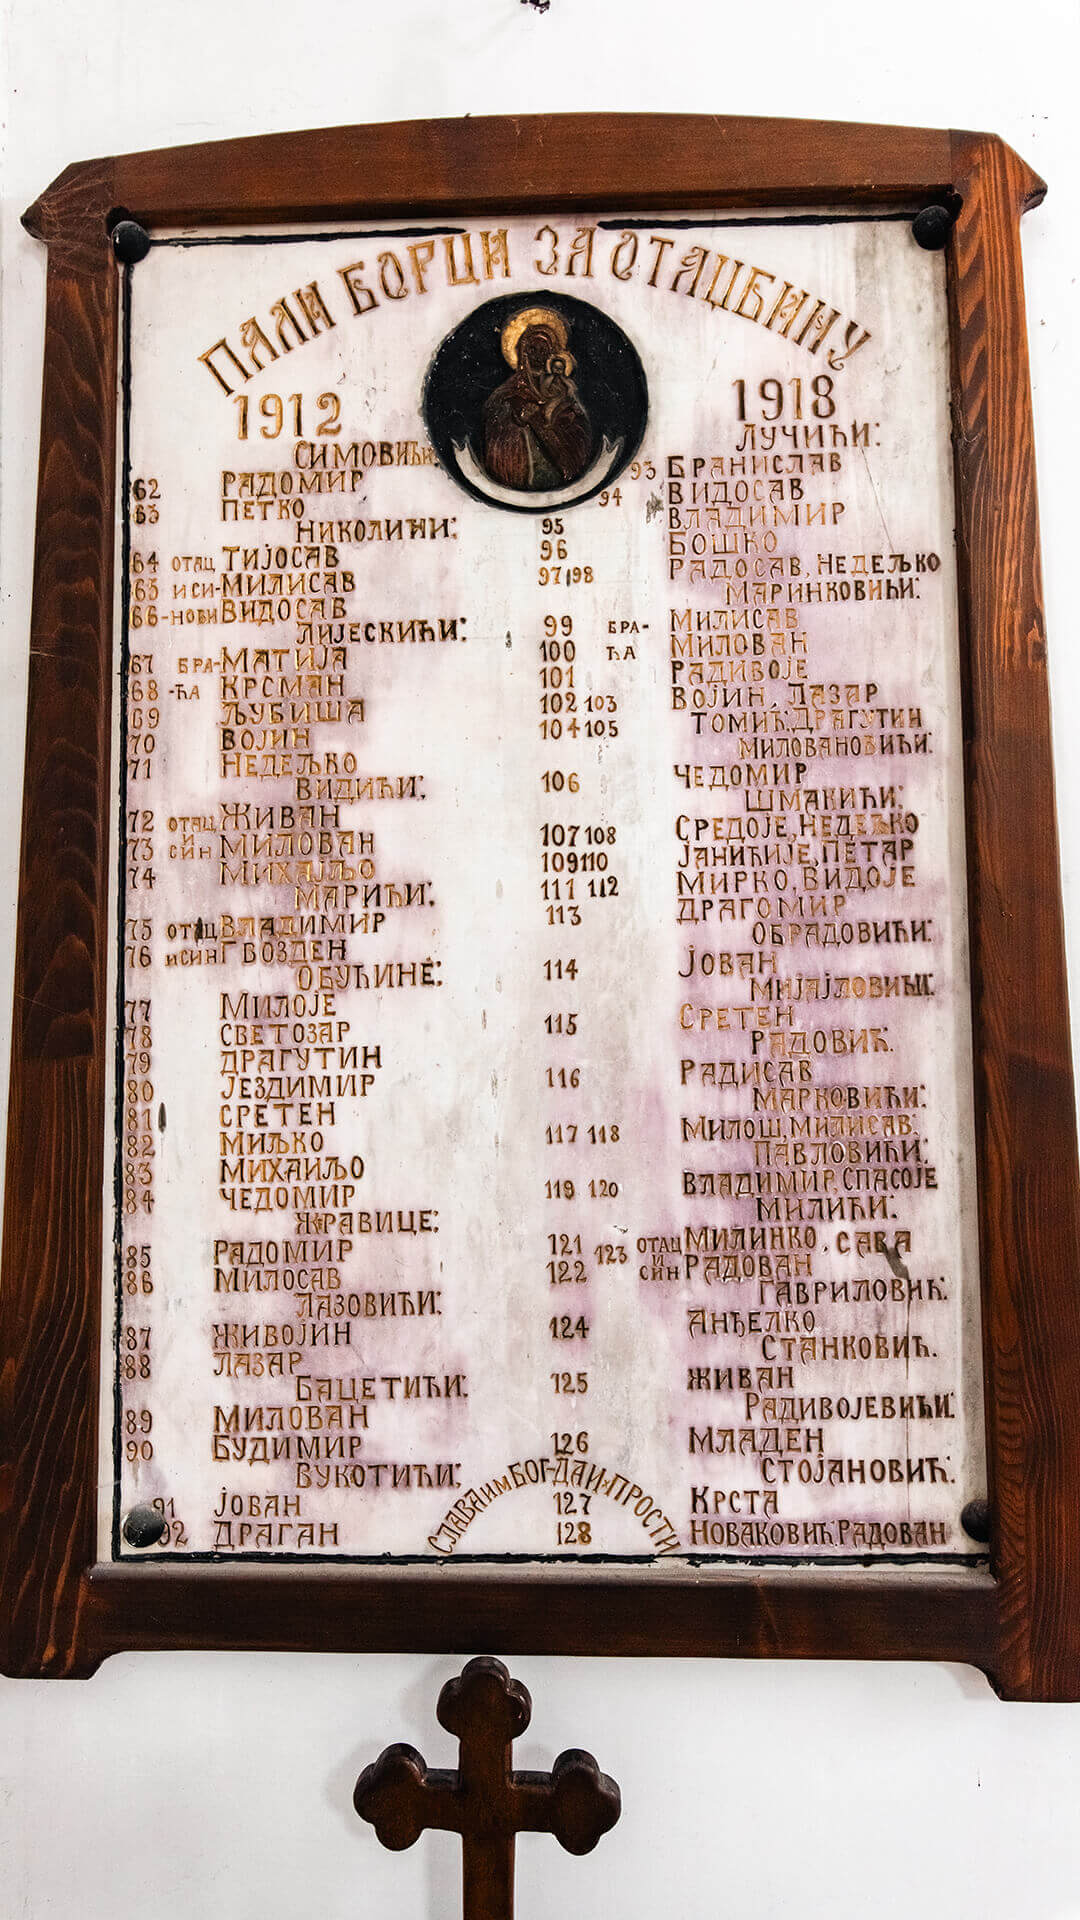 ПАЛИ БОРЦИ ЗА ОТАЏБИНУ
1912
СИМОВИЋИ:
62 РАДОМИР
63 ПЕТКО
НИКОЛИЋИ:
64 ОТАЦ ТИЈОСАВ
65 И СИ- МИЛИСАВ
66 -НОВИ ВИДОСАВ
ЛИЈЕСКИЋИ:
67 БРА- МАТИЈА
68 -ЋА КРСМАН
69 ЉУБИША
70 ВОЈИН
71 НЕДЕЉКО
ВИДИЋИ:
72 ОТАЦ ЖИВАН
И
73 СИН МИЛОВАН
74 МИХАЈЉО
МАРИЋИ:
75 ОТАЦ ВЛАДИМИР
76 И СИН ГВОЗДЕН
ОБУЋИНЕ:
77 МИЛОЈЕ
78 СВЕТОЗАР
79 ДРАГУТИН
80 ЈЕЗДИМИР
81 СРЕТЕН
82 МИЉКО
83 МИХАИЉО
84 ЧЕДОМИР
ЖРАВИЦЕ:
85 РАДОМИР
86 МИЛОСАВ
ЛАЗОВИЋИ:
87 ЖИВОЈИН
88 ЛАЗАР
БАЦЕТИЋИ:
89 МИЛОВАН
90 БУДИМИР
ВУКОТИЋИ:
91 ЈОВАН
92 ДРАГАН
1918
ЛУЧИЋИ:
93 БРАНИСЛАВ
94 ВИДОСАВ
95 ВЛАДИМИР
96 БОШКО
97 198 РАДОСАВ, НЕДЕЉКО
МАРИНКОВИЋИ:
99 БРА- МИЛИСАВ
100 ЋА МИЛОВАН
101 РАДИВОЈЕ
102 103 ВОЈИН, ЛАЗАР
104 105 ТОМИЋ: ДРАГУТИН
МИЛОВАНОВИЋИ:
106 ЧЕДОМИР
ШМАКИЋИ:
107 108 СРЕДОЈЕ, НЕДЕЉКО
109 110 ЈАНИЋИЈЕ, ПЕТАР
111 112 МИРКО, ВИДОЈЕ
113 ДРАГОМИР
ОБРАДОВИЋИ:
114 ЈОВАН
МИЈАЈЛОВИЋИ:
115 СРЕТЕН
РАДОВИЋ:
116 РАДИСАВ
МАРКОВИЋИ:
117 118 МИЛОШ, МИЛИСАВ:
ПАВЛОВИЋИ:
119 120 ВЛАДИМИР, СПАСОЈЕ
МИЛИЋИ:
121 123 ОТАЦ МИЛИНКО, САВА
И
122 СИН РАДОВАН
ГАВРИЛОВИЋ:
124 АНЂЕЛКО
СТАНКОВИЋ.
125 ЖИВАН
РАДИВОЈЕВИЋИ:
126 МЛАДЕН
СТОЈАНОВИЋ:
127 КРСТА
128 НОВАКОВИЋ: РАДОВАН
СЛАВА ИМ БОГ-ДАИ ПРОСТИ